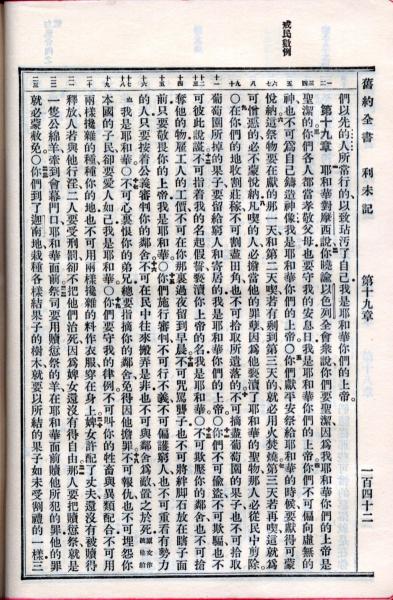 戒民數例
舊約全書 利未記 第十九章 一百四十二
們以先的人所常行的以致玷污了自己我是耶和華你們的上帝
第十九章 耶和華對摩西說你曉諭以色列全會衆說你們要聖潔因爲我耶和華你們的上帝是
聖潔的你們各人都當孝敬父母也要守我的安息日我是耶和華你們的上帝〇你們不可偏向虛無的
神也不可爲自己鑄造神像我是耶和華你們的上帝〇你們獻平安祭給耶和華的時候要獻得可蒙
悅納這祭物要在獻的那一天和第二天喫若有剩到第三天的就必用火焚燒第三天若再喫這就爲
可憎惡的必不蒙悅納凡喫的人必擔當他的罪孽因爲他褻瀆了耶和華的聖物那人必從民中剪除
〇在你們的地收割莊稼不可割盡田角也不可拾取所遺落的不可摘盡葡萄園的果子也不可拾取
葡萄園所掉的果子要留給窮人和寄居的我是耶和華你們的上帝〇你們不可偷盜不可欺騙也不
可彼此說謊不可指着我的名起假誓褻瀆你上帝的名我是耶和華〇不可欺壓你的鄰舍也不可搶
奪他的物雇工人的工價不可在你那裏過夜留到早晨不可咒罵聾子也不可將絆脚石放在瞎子面
前只要敬畏你的上帝我是耶和華〇你們施行審判不可行不義不可偏護窮人也不可重看有勢力
的人只要按着公義審判你的鄰舍不可在民中往來搬弄是非也不可與鄰舍爲敵置之於死原文作流他的血
我是耶和華〇不可心裏恨你的弟兄總要指摘你的鄰舍免得因他擔罪不可報仇也不可埋怨你
本國的子民却要愛人如己我是耶和華〇你們要守我的律例不可叫你的牲畜與異類配合不可用
兩樣攙雜的種種你的地也不可用兩樣攙雜的料作衣服穿在身上婢女許配了丈夫還沒有被贖得
釋放人若與他行淫二人要受刑罰却不可把他們治死因爲婢女還沒有得自由那人要把贖愆祭就是
一隻公綿羊牽到會幕門口耶和華面前祭司要用贖愆祭的羊在耶和華面前贖他所犯的罪他的罪
就必蒙赦免〇你們到了迦南地栽種各樣結果子的樹木就要以所結的果子如未受割禮的一樣三